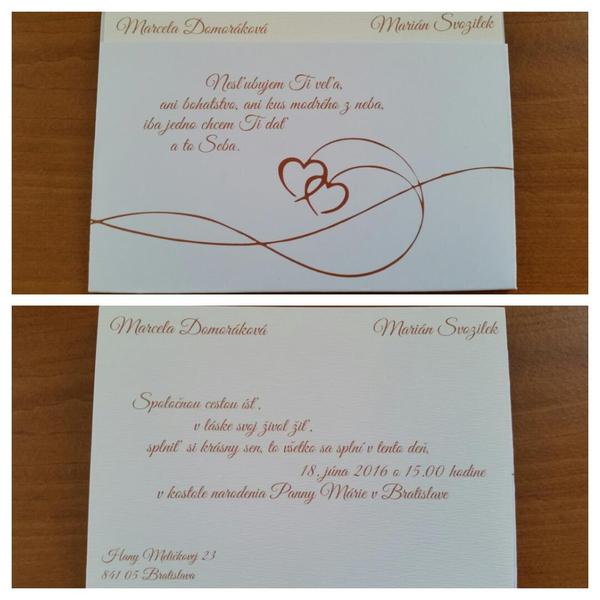 Marcela Domoráková
Marián Svozílek
Nesľubujem Ti veľa,
ani bohatstvo, ani kus modrého z neba,
iba jedno chcem Ti dať
a to Seba.
Marcela Domoráková
Marián Svozílek
Spoločnou cestou ísť,
v láske svoj život žiť,
splniť si krásny sen, to všetko sa splní v tento deň,
18. júna 2016 o 15.00 hodine
v kostole narodenia Panny Márie v Bratislave
Hany Meličkovej 23
841 05 Bratislava